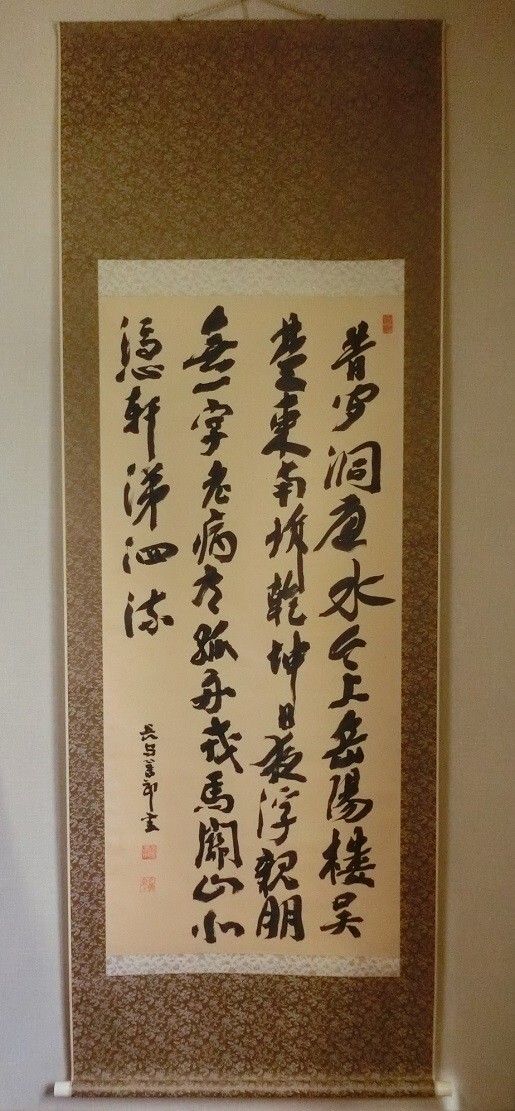 昔聞洞庭水今上岳陽樓呉
楚東南坼乾坤日夜浮親朋
無一字老病有孤舟戎馬關山北
憑軒涕泗流
長与善郎書